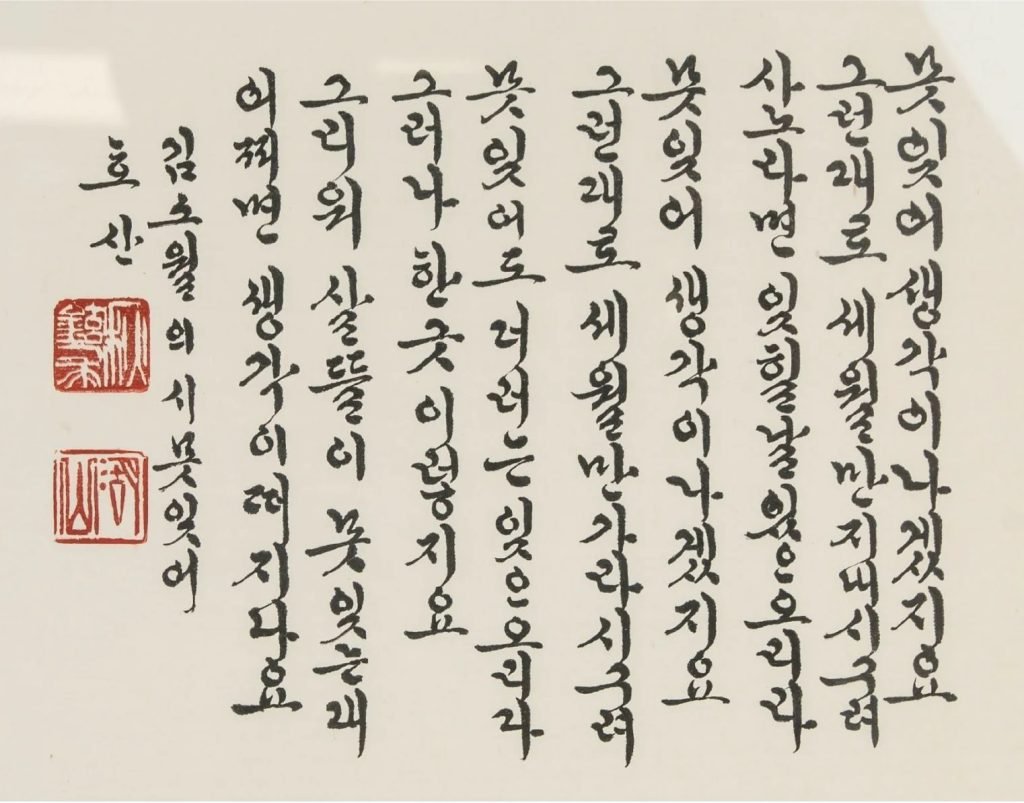 못잊어 생각이나겠지요
그런대로 세월만지내시구려
사노라면 잊힐날있으오리라
못잊어 생각이나겠지요
그런대로 세월만가라시구려
못잊어도 더러는 잊으오리다
그러나 한긋 이렇지요
그리워 살뜰이 못잊는대
어찌면 생각이떠지나요
김소월의 시 못잊어
호산